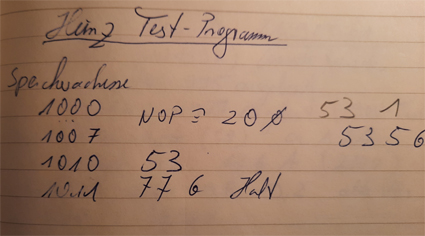 Heinz Test-Programm
Speicheradresse
1000 NOP = 200 53 1
1007 5356
1010 53
1011 776 Halt